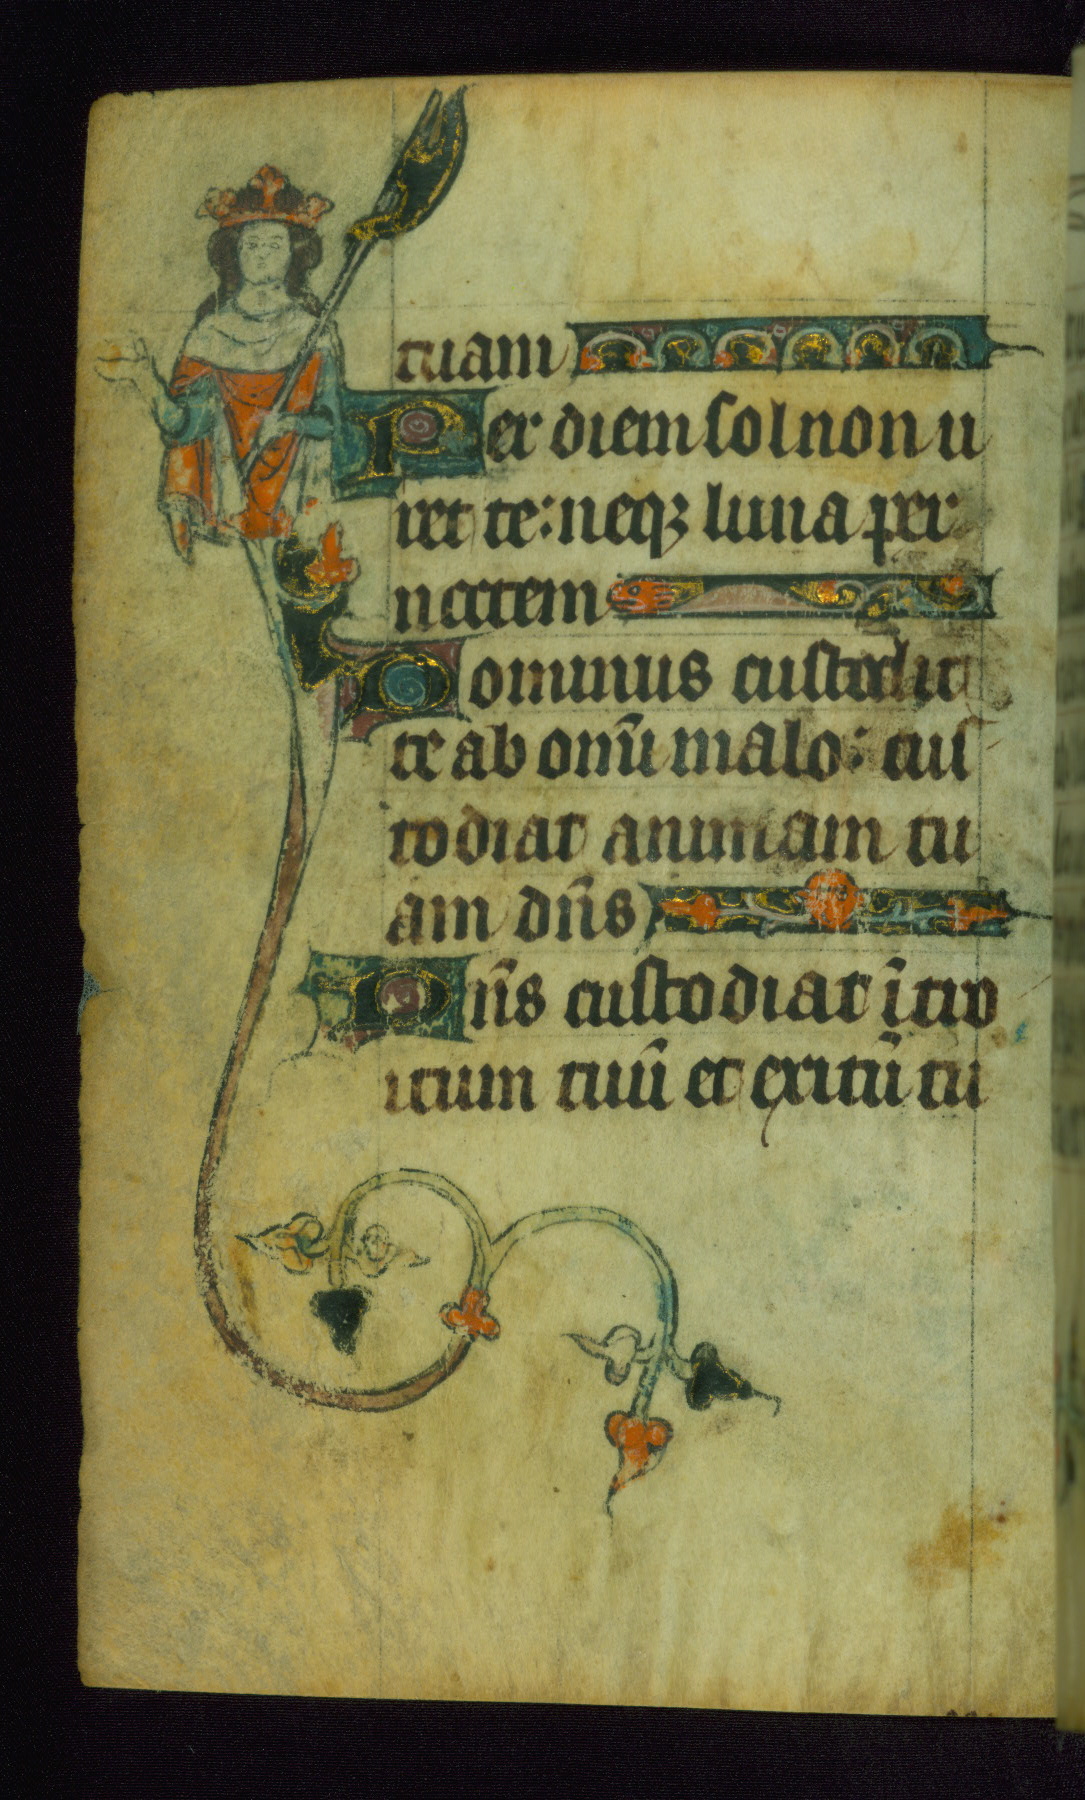 tuam
Per diem sol non u
ret te: neqꝫ luna per
noctem
Dominus custodit
te ab om̄i malo: cus
todiat animam tu
am dn̄s
Dn̄s custodiat ītro
itum tuū et exitū tu